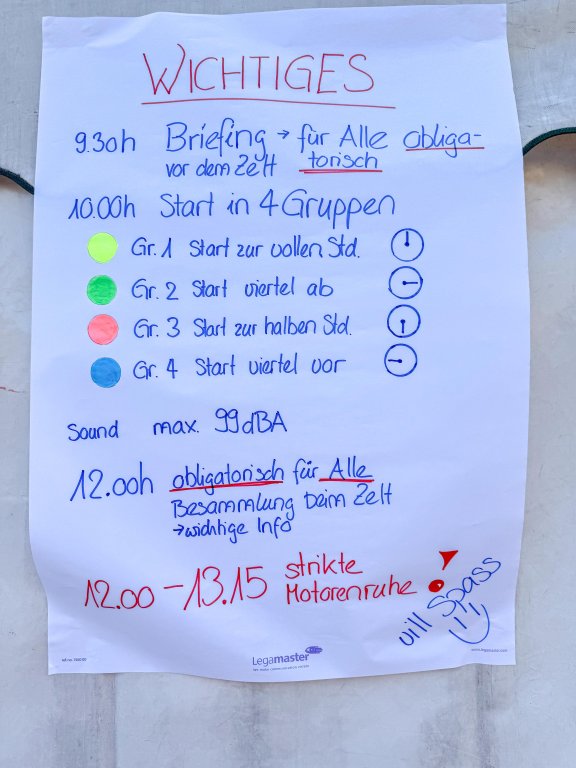 WICHTIGES
9.30h Briefing → für Alle obliga-
vor dem Zelt torisch
10.00h Start in 4 Gruppen
Gr. 1 Start zur vollen Std.
Gr. 2 Start viertel ab
Gr. 3 Start zur halben Std.
Gr. 4 Start viertel vor
Sound max. 99dBA
12.00h obligatorisch für Alle
Besammlung beim Zelt
→ wichtige Info
12.00 – 13.15 strikte
Motorenruhe !
vill Spass
Legamaster
www.legamaster.com